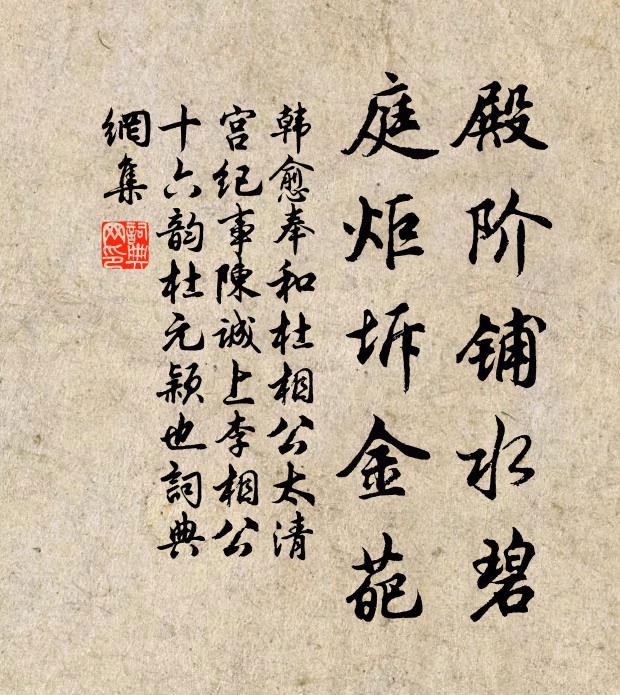 殿阶铺水碧
庭炬坼金葩
韩愈奉和杜相公太清
宫纪事陳诚上李相公
十六韵杜元颖也詞典
網集
詞典
网印